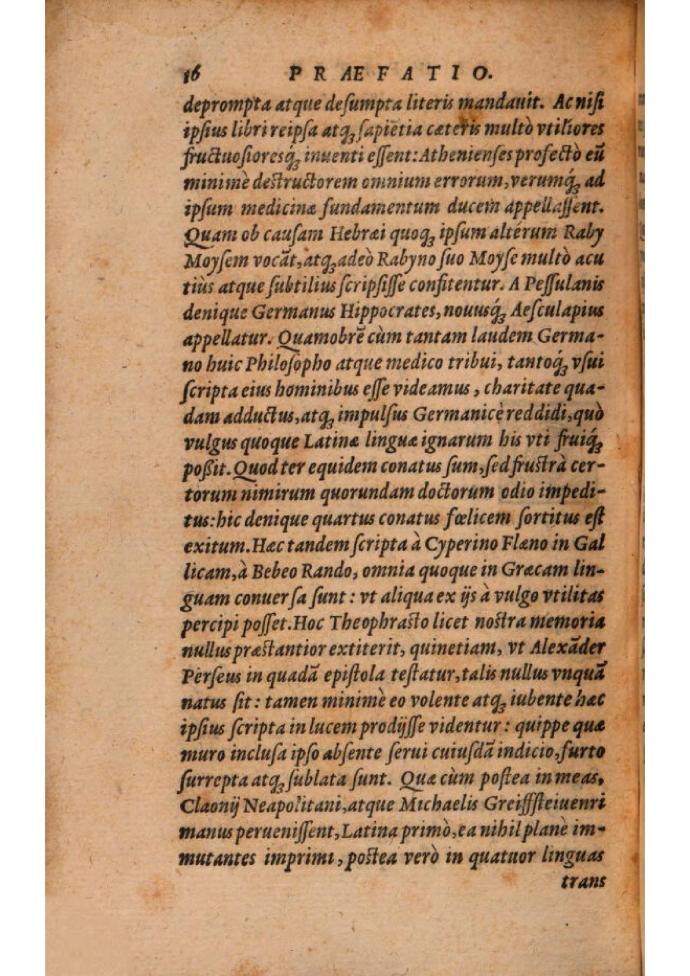 16 PRÆFATIO.
deprompta atque deſumpta literis mandauit. Ac niſi
ipſius libri reipſa atq́; ſapiẽtia cæteris multò vtiliores
fructuoſioresq́; inuenti eſſent: Athenienſes profectò eũ
minimè deſtructorem omnium errorum, verumq́; ad
ipſum medicinæ fundamentum ducem appellaſſent.
Quam ob cauſam Hebræi quoq; ipſum alterum Raby
Moyſem vocãt, atq; adeò Rabyno ſuo Moyſe multò acu
tiùs atque ſubtilius ſcripſiſſe confitentur. A Peſſulanis
denique Germanus Hippocrates, nouusq́; Aeſculapius
appellatur. Quamobrẽ cùm tantam laudem Germa-
no huic Philoſopho atque medico tribui, tantoq́; vſui
ſcripta eius hominibus eſſe videamus, charitate qua-
dam adductus, atq; impulſus Germanicè reddidi, quò
vulgus quoque Latinæ linguæ ignarum his vti fruiq́;
poßit. Quod ter equidem conatus ſum, ſed fruſtrà cer-
torum nimirum quorundam doctorum odio impedi-
tus: hic denique quartus conatus fœlicem ſortitus eſt
exitum. Hæc tandem ſcripta à Cyperino Flæno in Gal
licam, à Bebeo Rando, omnia quoque in Græcam lin-
guam conuerſa ſunt: vt aliqua ex ijs à vulgo vtilitas
percipi poſſet. Hoc Theophraſto licet noſtra memoria
nullus præſtantior extiterit, quinetiam, vt Alexãder
Perſeus in quadã epiſtola teſtatur, talis nullus vnquã
natus ſit: tamen minimè eo volente atq; iubente hæc
ipſius ſcripta in lucem prodijſſe videntur: quippe quæ
muro incluſa ipſo abſente ſerui cuiuſdã indicio, furto
ſurrepta atq; ſublata ſunt. Quæ cùm poſtea in meas,
Claonij Neapolitani, atque Michaelis Greiffſteiuenri
manus perueniſſent, Latina primò, ea nihil planè im-
mutantes imprimi, poſtea verò in quatuor linguas
trans